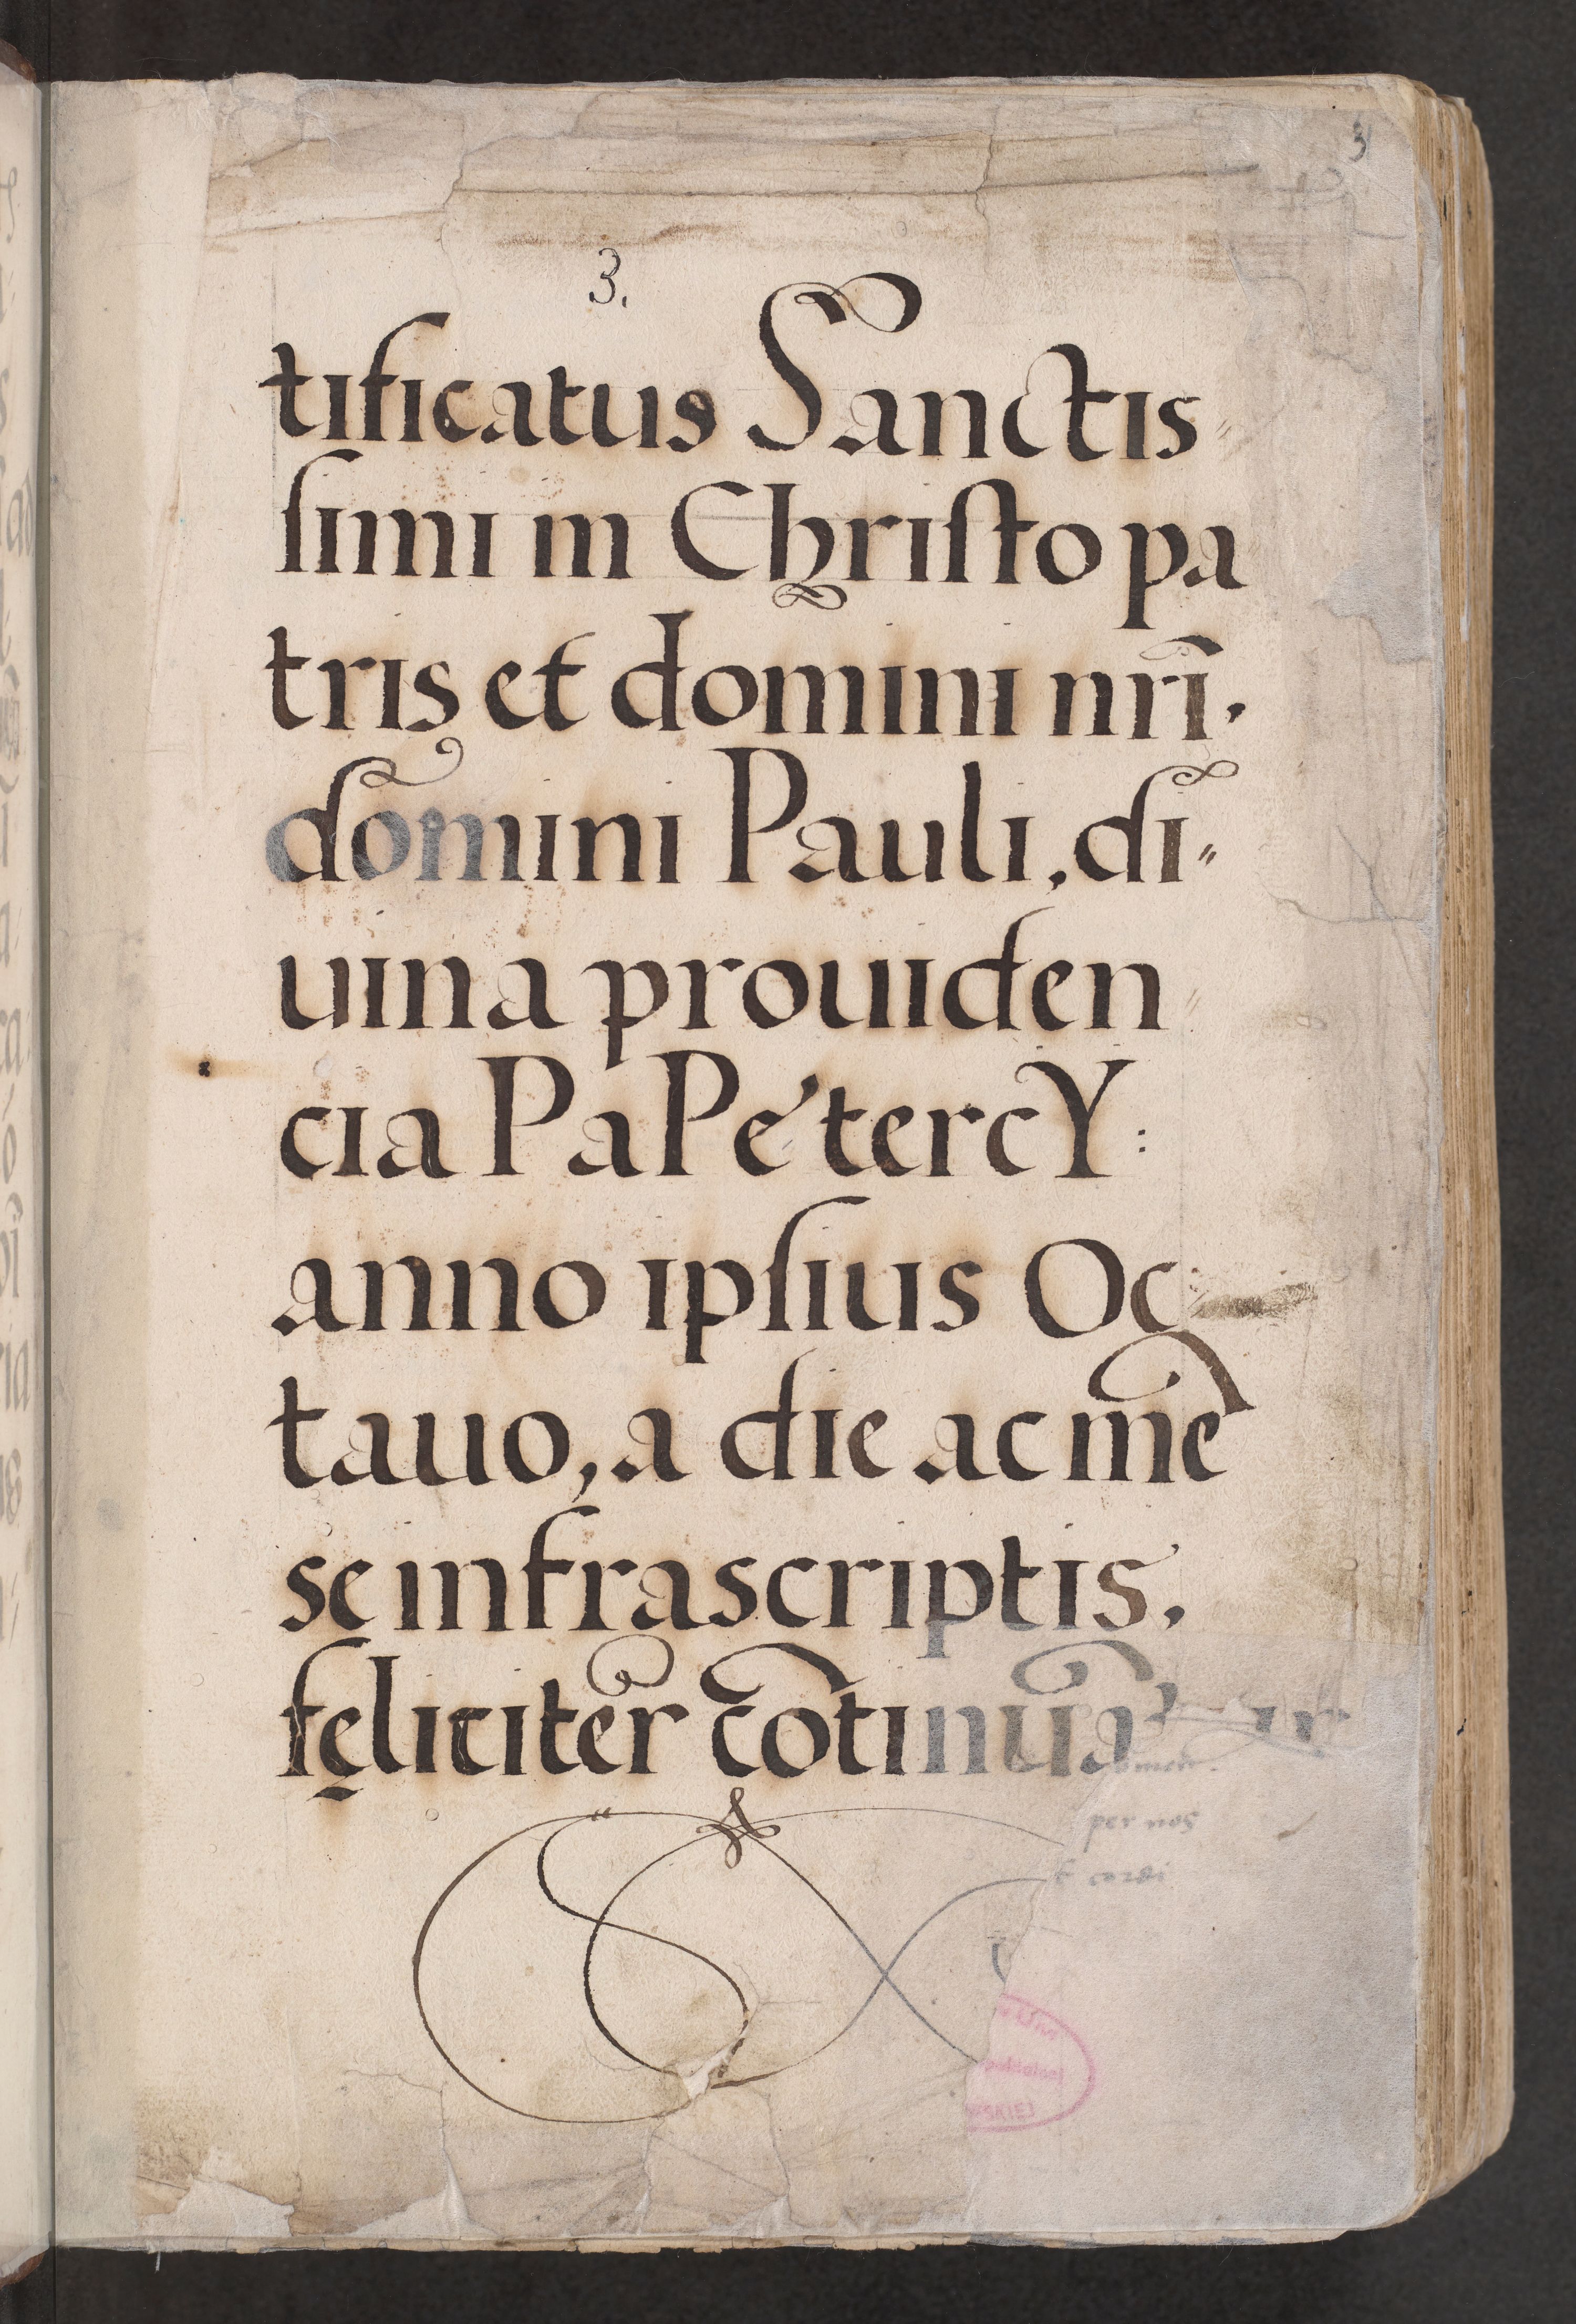 3
3.
tificatus Sanctis⸗
ſimi in Chriſto pa⸗
tris et domini nr̄i.
domini Pauli, di⸗
uina prouiden⸗
cia PaPe tercY:
anno ipſius Oc⸗
tauo, a die ac me͂
se infrascriptis,
fęliciter co͂tinua
per nos